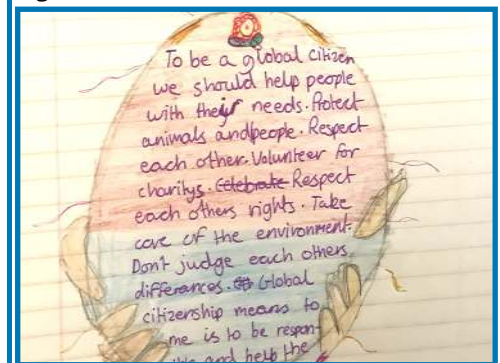 To be a global citizen
we should help people
with their needs. Protect
animals and people. Respect
each other. Volunteer for
charitys. Celebrate Respect
each others rights. Take
care of the environment.
Don't judge each others
differances. Global
citizenship means to
me is to be respon-
and help the